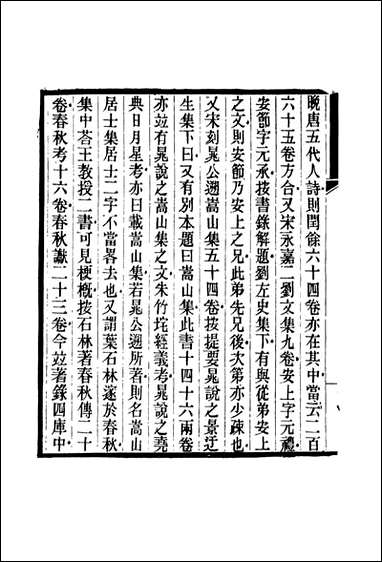 晚唐五代人詩則閏餘六十四卷亦在其中當云二百
六十五卷方合又宋永嘉二劉文集九卷安上字元禮
安節字元承按書錄解題劉左史集下有與從弟安上
之文則安節乃安上之兄此弟先兄後次第亦少疎也
又宋刻晁公遡嵩山集五十四卷按提要晁說之景迂
生集下曰又有別本題曰嵩山集此書十四十六兩卷
亦竝有晁說之嵩山集之文朱竹垞經義考晁說之堯
典日月星考亦曰載嵩山集若晁公遡所著則名嵩山
居士集居士二字不當畧去也又謂葉石林邃於春秋
集中荅王敎授二書可見梗概按石林著春秋傳二十
卷春秋考十六卷春秋讞二十三卷今竝著錄四庫中